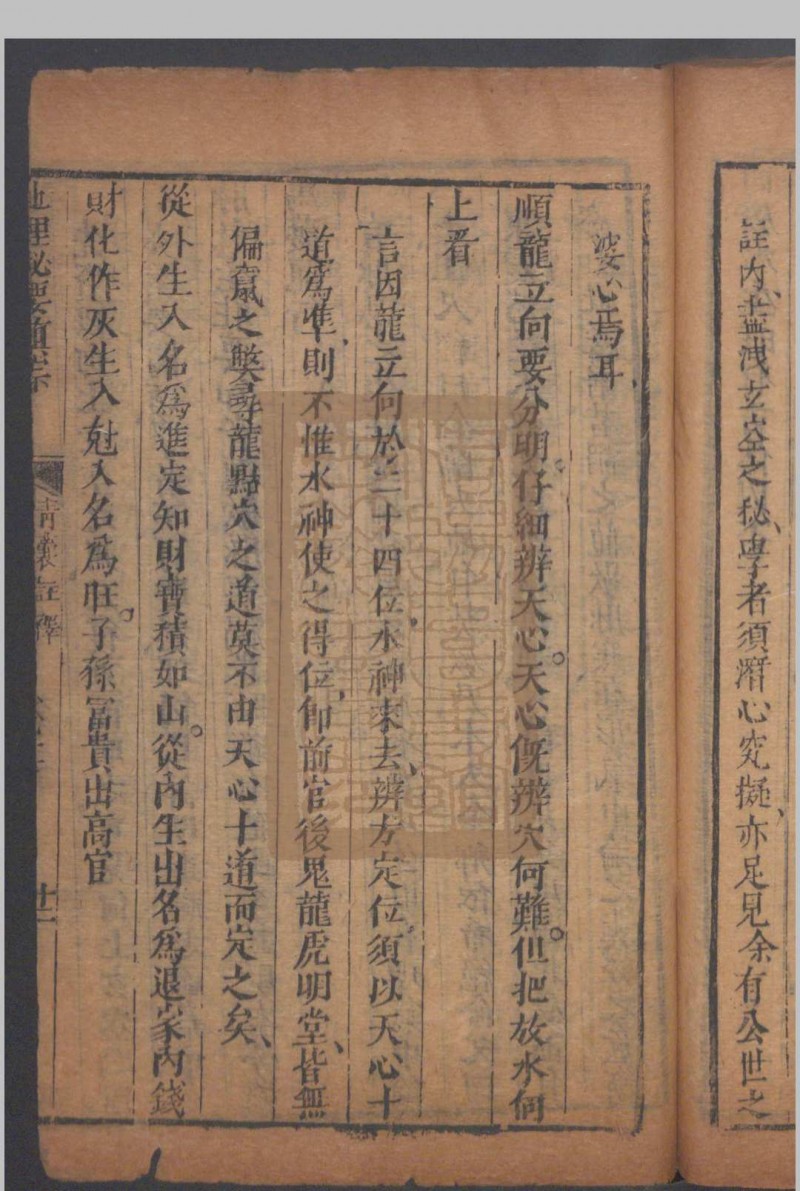 註内盡洩玄空之秘、學者須潛心究擬、亦足見余有公世之
婆心焉耳、
順龍立向要分明。仔細辨天心。天心旣辨穴何難。但把放水向
上看
言因龍立向於二十四位、水神來去、辨方定位、須以天心十
道爲準、則不惟水神使之得位、卽前官後鬼龍虎明堂、皆無
偏䆮之獘尋龍點穴之道莫不由天心十道而定之矣、
從外生入名爲進定知財寶積如山。從内生出名爲退家内錢
財化作灰生入尅入名爲旺。子孫富貴出高官
地理秘要
靑囊註釋
廿二